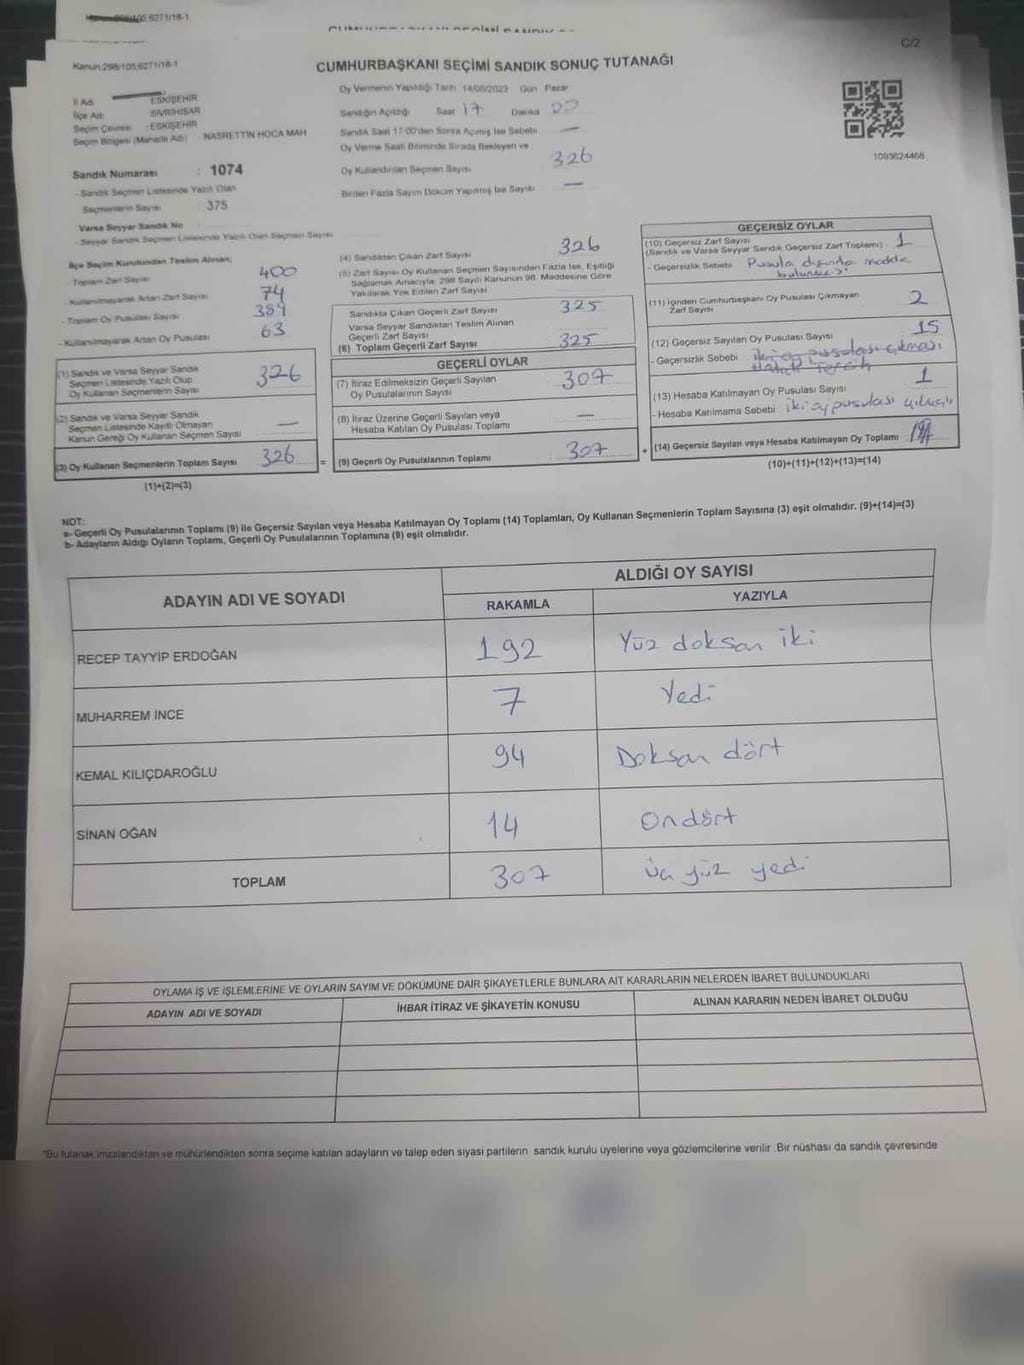 6271/18-1
C/2
Kanun 298/105.6271/18-1
CUMHURBAŞKANI SEÇİMİ SANDIK SONUÇ TUTANAĞI
İl Adı : ESKİŞEHİR
İlçe Adı : SİVRİHİSAR
Seçim Çevresi : ESKİŞEHİR
Seçim Bölgesi (Mahalle Adı) : NASRETTİN HOCA MAH
Sandık Numarası : 1074
- Sandık Seçmen Listesinde Yazılı Olan
Seçmenlerin Sayısı 375
Varsa Seyyar Sandık No
- Seyyar Sandık Seçmen Listesinde Yazılı Olan Seçmen Sayısı
Oy Vermenin Yapıldığı Tarih 14/05/2023 Gün Pazar
Sandığın Açıldığı Saat 17 Dakika 00
Sandık Saat 17:00'den Sonra Açılmış İse Sebebi —
Oy Verme Saati Bitiminde Sırada Bekleyen ve
Oy Kullandırılan Seçmen Sayısı 326
Birden Fazla Sayım Döküm Yapılmış İse Sayısı —
1093624468
İlçe Seçim Kurulundan Teslim Alınan;
- Toplam Zarf Sayısı 400
- Kullanılmayarak Artan Zarf Sayısı 74
- Toplam Oy Pusulası Sayısı 389
- Kullanılmayarak Artan Oy Pusulası 63
(1) Sandık ve Varsa Seyyar Sandık
Seçmen Listesinde Yazılı Olup
Oy Kullanan Seçmenlerin Sayısı 326
(2) Sandık ve Varsa Seyyar Sandık
Seçmen Listesinde Kayıtlı Olmayan
Kanun Gereği Oy Kullanan Seçmen Sayısı —
(3) Oy Kullanan Seçmenlerin Toplam Sayısı 326
(1)+(2)=(3)
(4) Sandıktan Çıkan Zarf Sayısı 326
(5) Zarf Sayısı Oy Kullanan Seçmen Sayısından Fazla İse, Eşitliği
Sağlamak Amacıyla; 298 Sayılı Kanunun 98. Maddesine Göre
Yakılarak Yok Edilen Zarf Sayısı
Sandıkta Çıkan Geçerli Zarf Sayısı 325
Varsa Seyyar Sandıktan Teslim Alınan
Geçerli Zarf Sayısı
(6) Toplam Geçerli Zarf Sayısı 325
GEÇERLİ OYLAR
(7) İtiraz Edilmeksizin Geçerli Sayılan
Oy Pusulalarının Sayısı 307
(8) İtiraz Üzerine Geçerli Sayılan veya
Hesaba Katılan Oy Pusulası Toplamı —
= (9) Geçerli Oy Pusulalarının Toplamı 307
GEÇERSİZ OYLAR
(10) Geçersiz Zarf Sayısı
(Sandık ve Varsa Seyyar Sandık Geçersiz Zarf Toplamı) 1
- Geçersizlik Sebebi Pusula dışında madde
bulunması
(11) İçinden Cumhurbaşkanı Oy Pusulası Çıkmayan
Zarf Sayısı 2
(12) Geçersiz Sayılan Oy Pusulası Sayısı 15
- Geçersizlik Sebebi
(13) Hesaba Katılmayan Oy Pusulası Sayısı 1
- Hesaba Katılmama Sebebi iki oy pusulası
+ (14) Geçersiz Sayılan veya Hesaba Katılmayan Oy Toplamı
(10)+(11)+(12)+(13)=(14)
NOT:
a- Geçerli Oy Pusulalarının Toplamı (9) ile Geçersiz Sayılan veya Hesaba Katılmayan Oy Toplamı (14) Toplamları, Oy Kullanan Seçmenlerin Toplam Sayısına (3) eşit olmalıdır. (9)+(14)=(3)
b- Adayların Aldığı Oyların Toplamı, Geçerli Oy Pusulalarının Toplamına (9) eşit olmalıdır.
ADAYIN ADI VE SOYADI
ALDIĞI OY SAYISI
RAKAMLA YAZIYLA
RECEP TAYYİP ERDOĞAN 192 Yüz doksan iki
MUHARREM İNCE 7 Yedi
KEMAL KILIÇDAROĞLU 94 Doksan dört
SİNAN OĞAN 14 Ondört
TOPLAM 307 Üç yüz yedi
OYLAMA İŞ VE İŞLEMLERİNE VE OYLARIN SAYIM VE DÖKÜMÜNE DAİR ŞİKAYETLERLE BUNLARA AİT KARARLARIN NELERDEN İBARET BULUNDUKLARI
ADAYIN ADI VE SOYADI İHBAR İTİRAZ VE ŞİKAYETİN KONUSU ALINAN KARARIN NEDEN İBARET OLDUĞU
*Bu tutanak imzalandıktan ve mühürlendikten sonra seçime katılan adayların ve talep eden siyasi partilerin sandık kurulu üyelerine veya gözlemcilerine verilir. Bir nüshası da sandık çevresinde